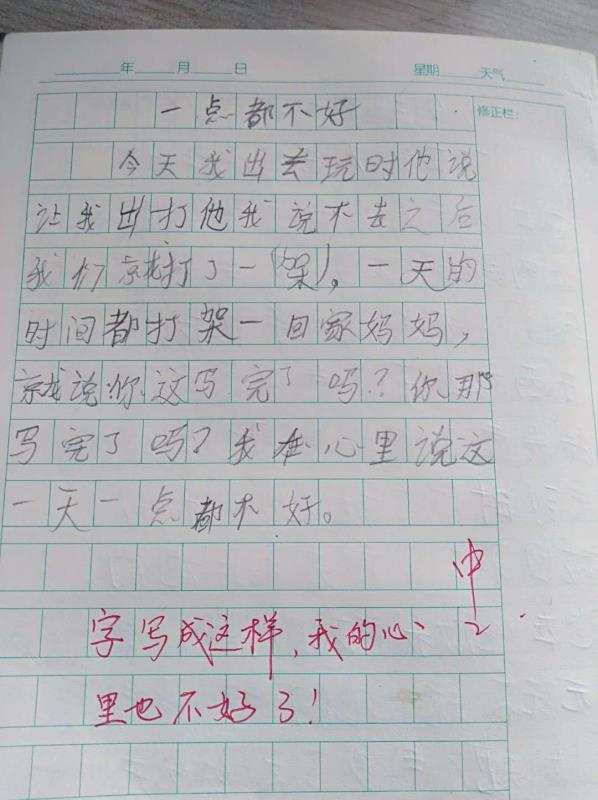 年 月 日 星期 天气
修正栏:
一点都不好
今天我出去玩时他说
让我出打他我说不去之后
我们就打了一(架)，一天的
时间都打架一回家妈妈，
就说你这写完了吗？你那
写完了吗？我在心里说这
一天一点都不好。
中
2
字写成这样，我的心
里也不好了！